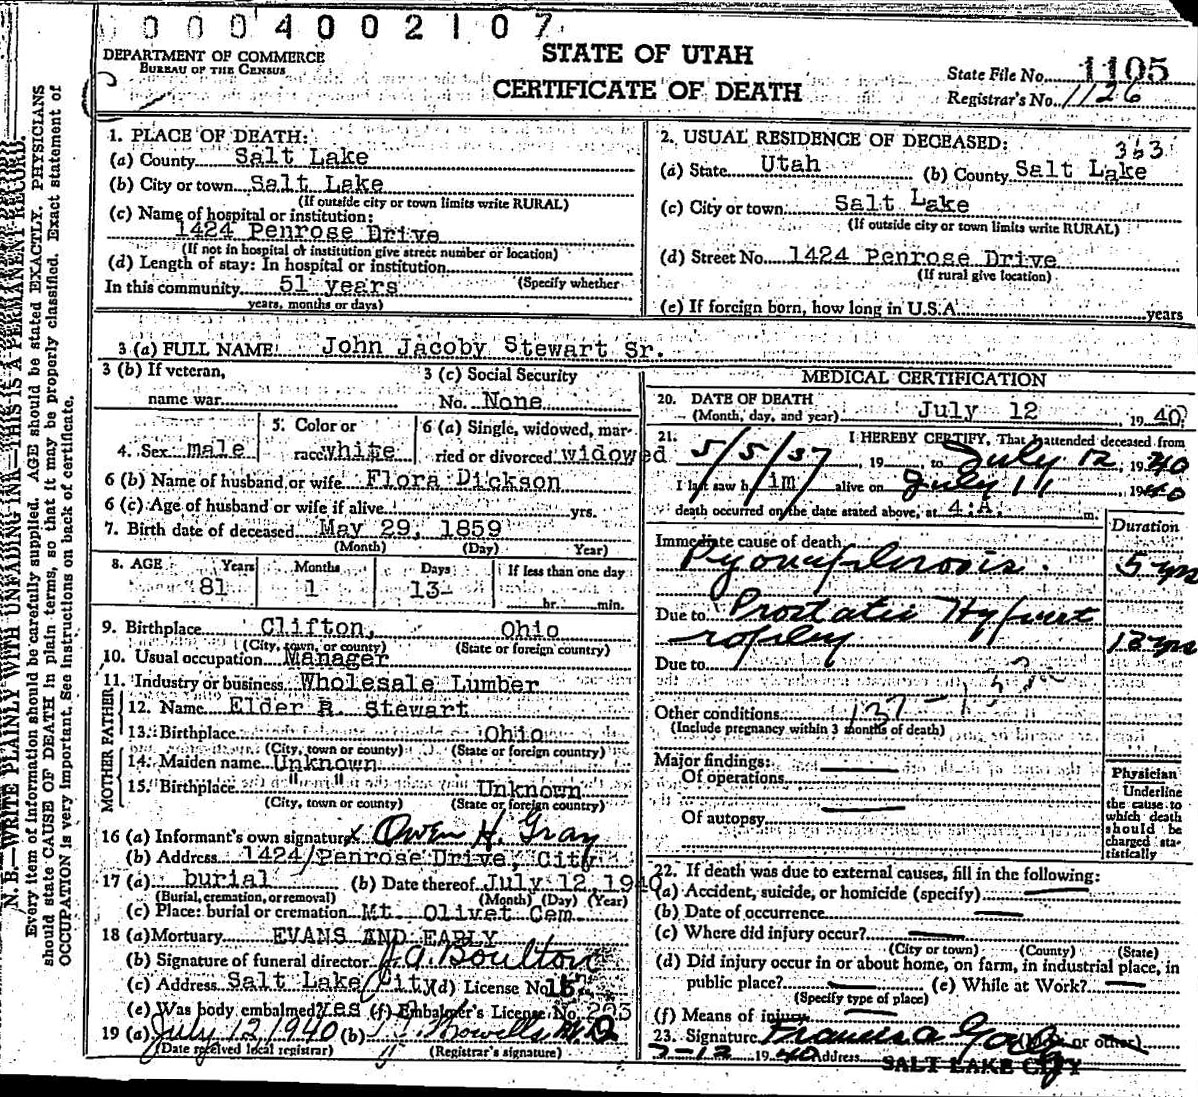 0000 4002107
DEPARTMENT OF COMMERCE
BUREAU OF THE CENSUS
STATE OF UTAH
CERTIFICATE OF DEATH
State File No. 1105
Registrar's No. 1126
N. B.—WRITE PLAINLY WITH UNFADING INK—THIS IS A PERMANENT RECORD.
Every item of information should be carefully supplied. AGE should be stated EXACTLY. PHYSICIANS
should state CAUSE OF DEATH in plain terms, so that it may be properly classified. Exact statement of
OCCUPATION is very important. See instructions on back of certificate.
1. PLACE OF DEATH:
(a) County Salt Lake
(b) City or town Salt Lake
(If outside city or town limits write RURAL)
(c) Name of hospital or institution:
1424 Penrose Drive
(If not in hospital or institution give street number or location)
(d) Length of stay: In hospital or institution
(Specify whether
In this community 51 years
years, months or days)
2. USUAL RESIDENCE OF DECEASED:
363
(a) State Utah (b) County Salt Lake
(c) City or town Salt Lake
(If outside city or town limits write RURAL)
(d) Street No. 1424 Penrose Drive
(If rural give location)
(e) If foreign born, how long in U.S.A. years
3 (a) FULL NAME John Jacoby Stewart Sr.
3 (b) If veteran,
name war
3 (c) Social Security
No. None
4. Sex male
5. Color or
race white
6 (a) Single, widowed, mar-
ried or divorced widowed
6 (b) Name of husband or wife Flora Dickson
6 (c) Age of husband or wife if alive yrs.
7. Birth date of deceased May 29, 1859
(Month) (Day) Year)
8. AGE Years Months Days If less than one day
81 1 13 hr. min.
9. Birthplace Clifton, Ohio
(City, town, or county) (State or foreign country)
10. Usual occupation Manager
11. Industry or business Wholesale Lumber
FATHER
12. Name Elder R. Stewart
13. Birthplace Ohio
(City, town or county) (State or foreign country)
MOTHER
14. Maiden name Unknown
15. Birthplace " " Unknown
(City, town or county) (State or foreign country)
16 (a) Informant's own signature x Owen H. Gray
(b) Address 1424 Penrose Drive, City
17 (a) burial (b) Date thereof July 12, 1940
(Burial, cremation, or removal) (Month) (Day) (Year)
(c) Place: burial or cremation Mt. Olivet Cem.
18 (a) Mortuary EVANS AND EARLY
(b) Signature of funeral director J. A. Boulton
(c) Address Salt Lake City (d) License No. 15
(e) Was body embalmed? yes (f) Embalmer's License No. 205
19 (a) July 12 1940 (b) M.D.
(Date received local registrar) (Registrar's signature)
MEDICAL CERTIFICATION
20. DATE OF DEATH
(Month, day, and year) July 12 1940
21. I HEREBY CERTIFY, That I attended deceased from
5/5/37, 19 to July 12, 1940
I last saw h im alive on July 11, 1940
death occurred on the date stated above, at 4 A. m.
Duration
Immediate cause of death
Pyonephrosis. 5 yrs
Due to Prostatic Hypert
rophy 13 yrs
Due to
Other conditions 137
(Include pregnancy within 3 months of death)
Major findings:
Of operations
Of autopsy
Physician
Underline
the cause to
which death
should be
charged sta-
tistically
22. If death was due to external causes, fill in the following:
(a) Accident, suicide, or homicide (specify)
(b) Date of occurrence
(c) Where did injury occur?
(City or town) (County) (State)
(d) Did injury occur in or about home, on farm, in industrial place, in
public place? (e) While at Work?
(Specify type of place)
(f) Means of injury
23. Signature Francis A. or other)
7-12 1940 Address
SALT LAKE CITY